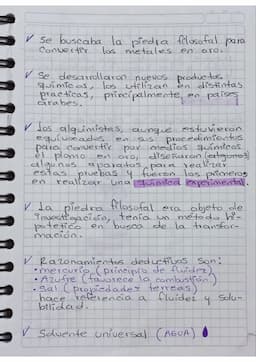 ✓ Se buscaba la piedra filosofal para
convertir los metales en oro.
✓ Se desarrollaron nuevos productos
químicos, los utilizan en distintas
practicas, principalmente, en países
árabes.
✓ Los alquimistas, aunque estuvieron
equivocados en sus procedimientos
para convertir por medios químicos
el plomo en oro, diseñaron (algunos)
algunos aparatos, para realizar
estas pruebas y fueron los primeros
en realizar una química experimental.
✓ La piedra filosofal era objeto de
investigación, tenía un método hi-
potetico en busca de la transfor-
mación.
✓ Razonamientos deductivos son:
• mercurio (principio de fluidez)
• Azufre (favorece la combustión)
• Sal (propiedades terreas)
hace referencia a fluidez y solu-
bilidad.
✓ Solvente universal (AGUA)